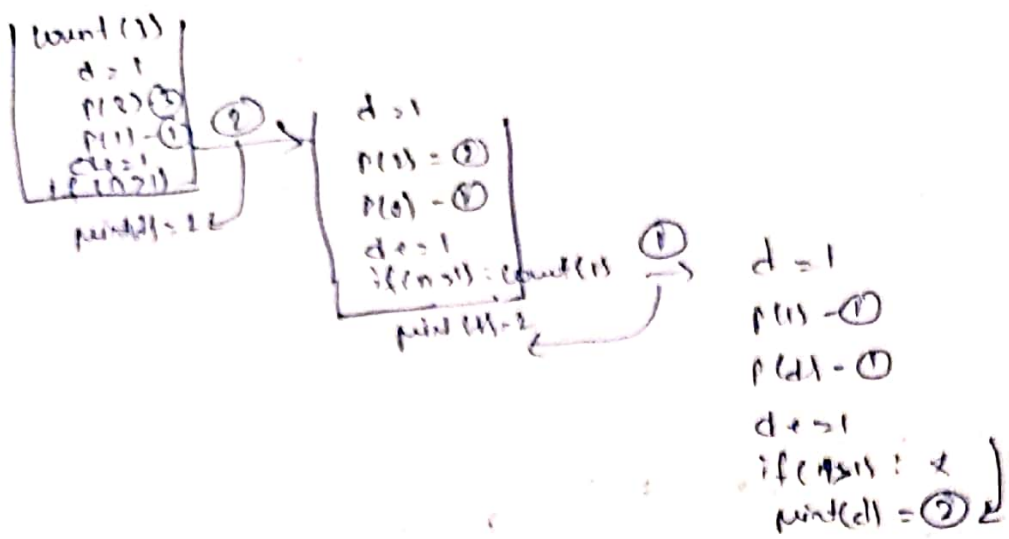 count(3)
d=1
p(2) ③
p(1) - ①
d+=1
if(n>1)
②
print(d) = 2
d=1
p(n) = ②
p(d) - ①
d+=1
if(n>1) : count(1)
print(d) - 2
①
d=1
p(1) - ①
p(d) - ①
d+=1
if(n>1) : x
print(d) = ②